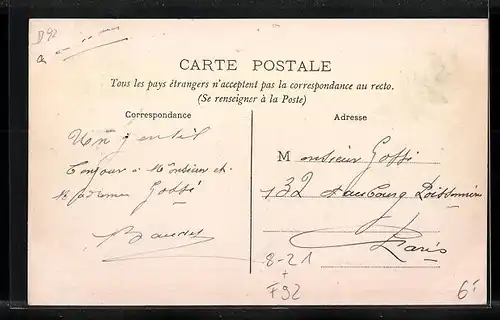 D92
CARTE POSTALE
Tous les pays étrangers n'acceptent pas la correspondance au recto.
(Se renseigner à la Poste)
Correspondance
Adresse
Un gentil
bonjour à Monsieur et
Madame Gossi
Monsieur Gossi
132 Faubourg Poissonnière
Paris
8-21
+
F92
6f